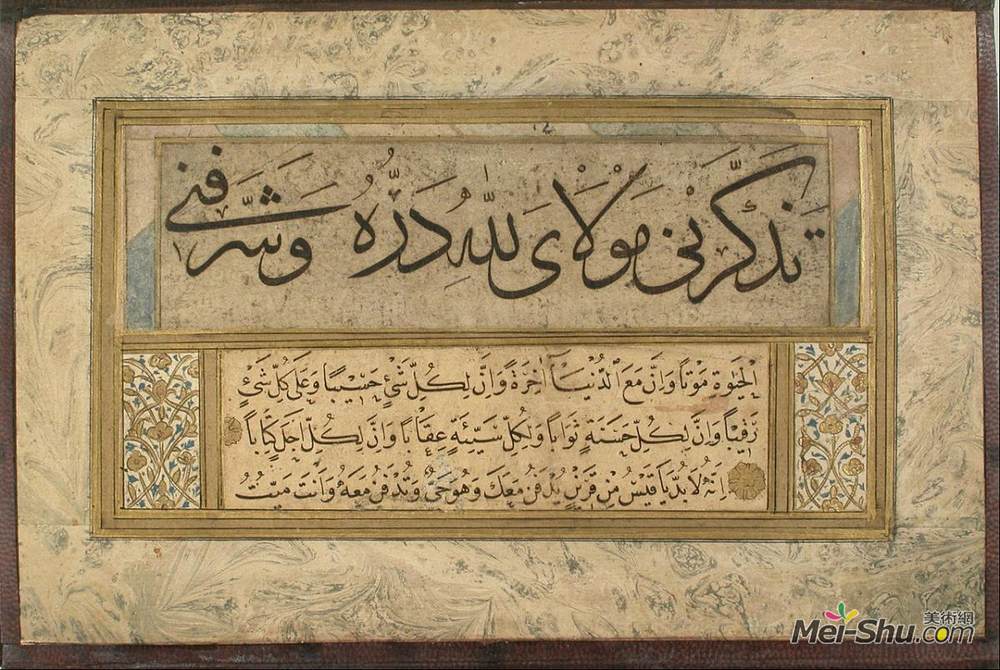 تذكرني مولاي لله دره وشرفني
الحيوة موتا وان مع الدنيا آخرة وان لكل شئ حسيبا وعلى كل شئ
رقيبا وان لكل حسنة ثوابا ولكل سيئة عقابا وان لكل اجل كتابا
انه لا بد يا قيس من قرين يدفن معك وهو حي وتدفن معه وانت ميت
美術網
Mei-Shu.com